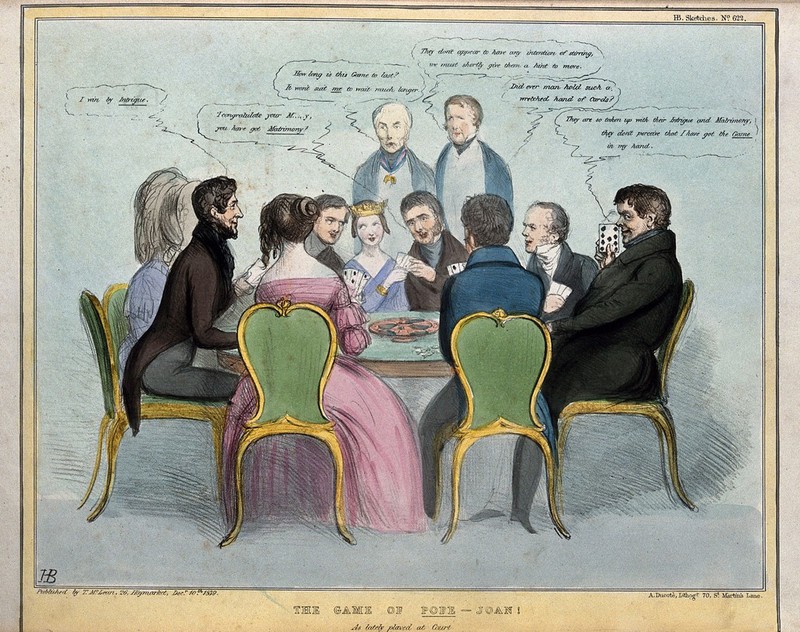 HB. Sketches. Nº 622.
They don't appear to have any intention of stirring,
we must shortly give them a hint to move.
How long is this Game to last?
It wont suit me to wait much longer
Did ever man hold such a
wretched hand of Cards?
I win by Intrigue.
I congratulate your M....y,
you have got Matrimony!
They are so taken up with their Intrigue and Matrimony,
they don't perceive that I have got the Game
in my hand.
HB
Published by T. McLean, 26, Haymarket, Decr. 10th. 1839.
A. Ducotê, Lithogr. 70, St. Martin's Lane.
THE GAME OF POPE — JOAN!
As lately played at Court